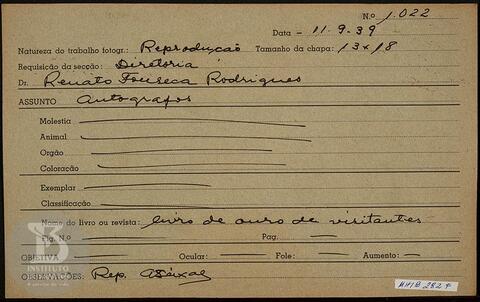 N.º 1.022
Data - 11.9.39
Natureza do trabalho fotogr.: Reprodução Tamanho da chapa: 13x18
Requisição da secção: Diretoria
Dr. Renato Fonseca Rodrigues
ASSUNTO Autografos
Molestia
Animal
Orgão
Coloração
Exemplar
Classificação
Nome do livro ou revista: livro de ouro de visitantes
Fig. N.º Pag.
OBJETIVA Ocular: Fole: Aumento:
OBSERVAÇÕES: Rep.
INSTITUTO